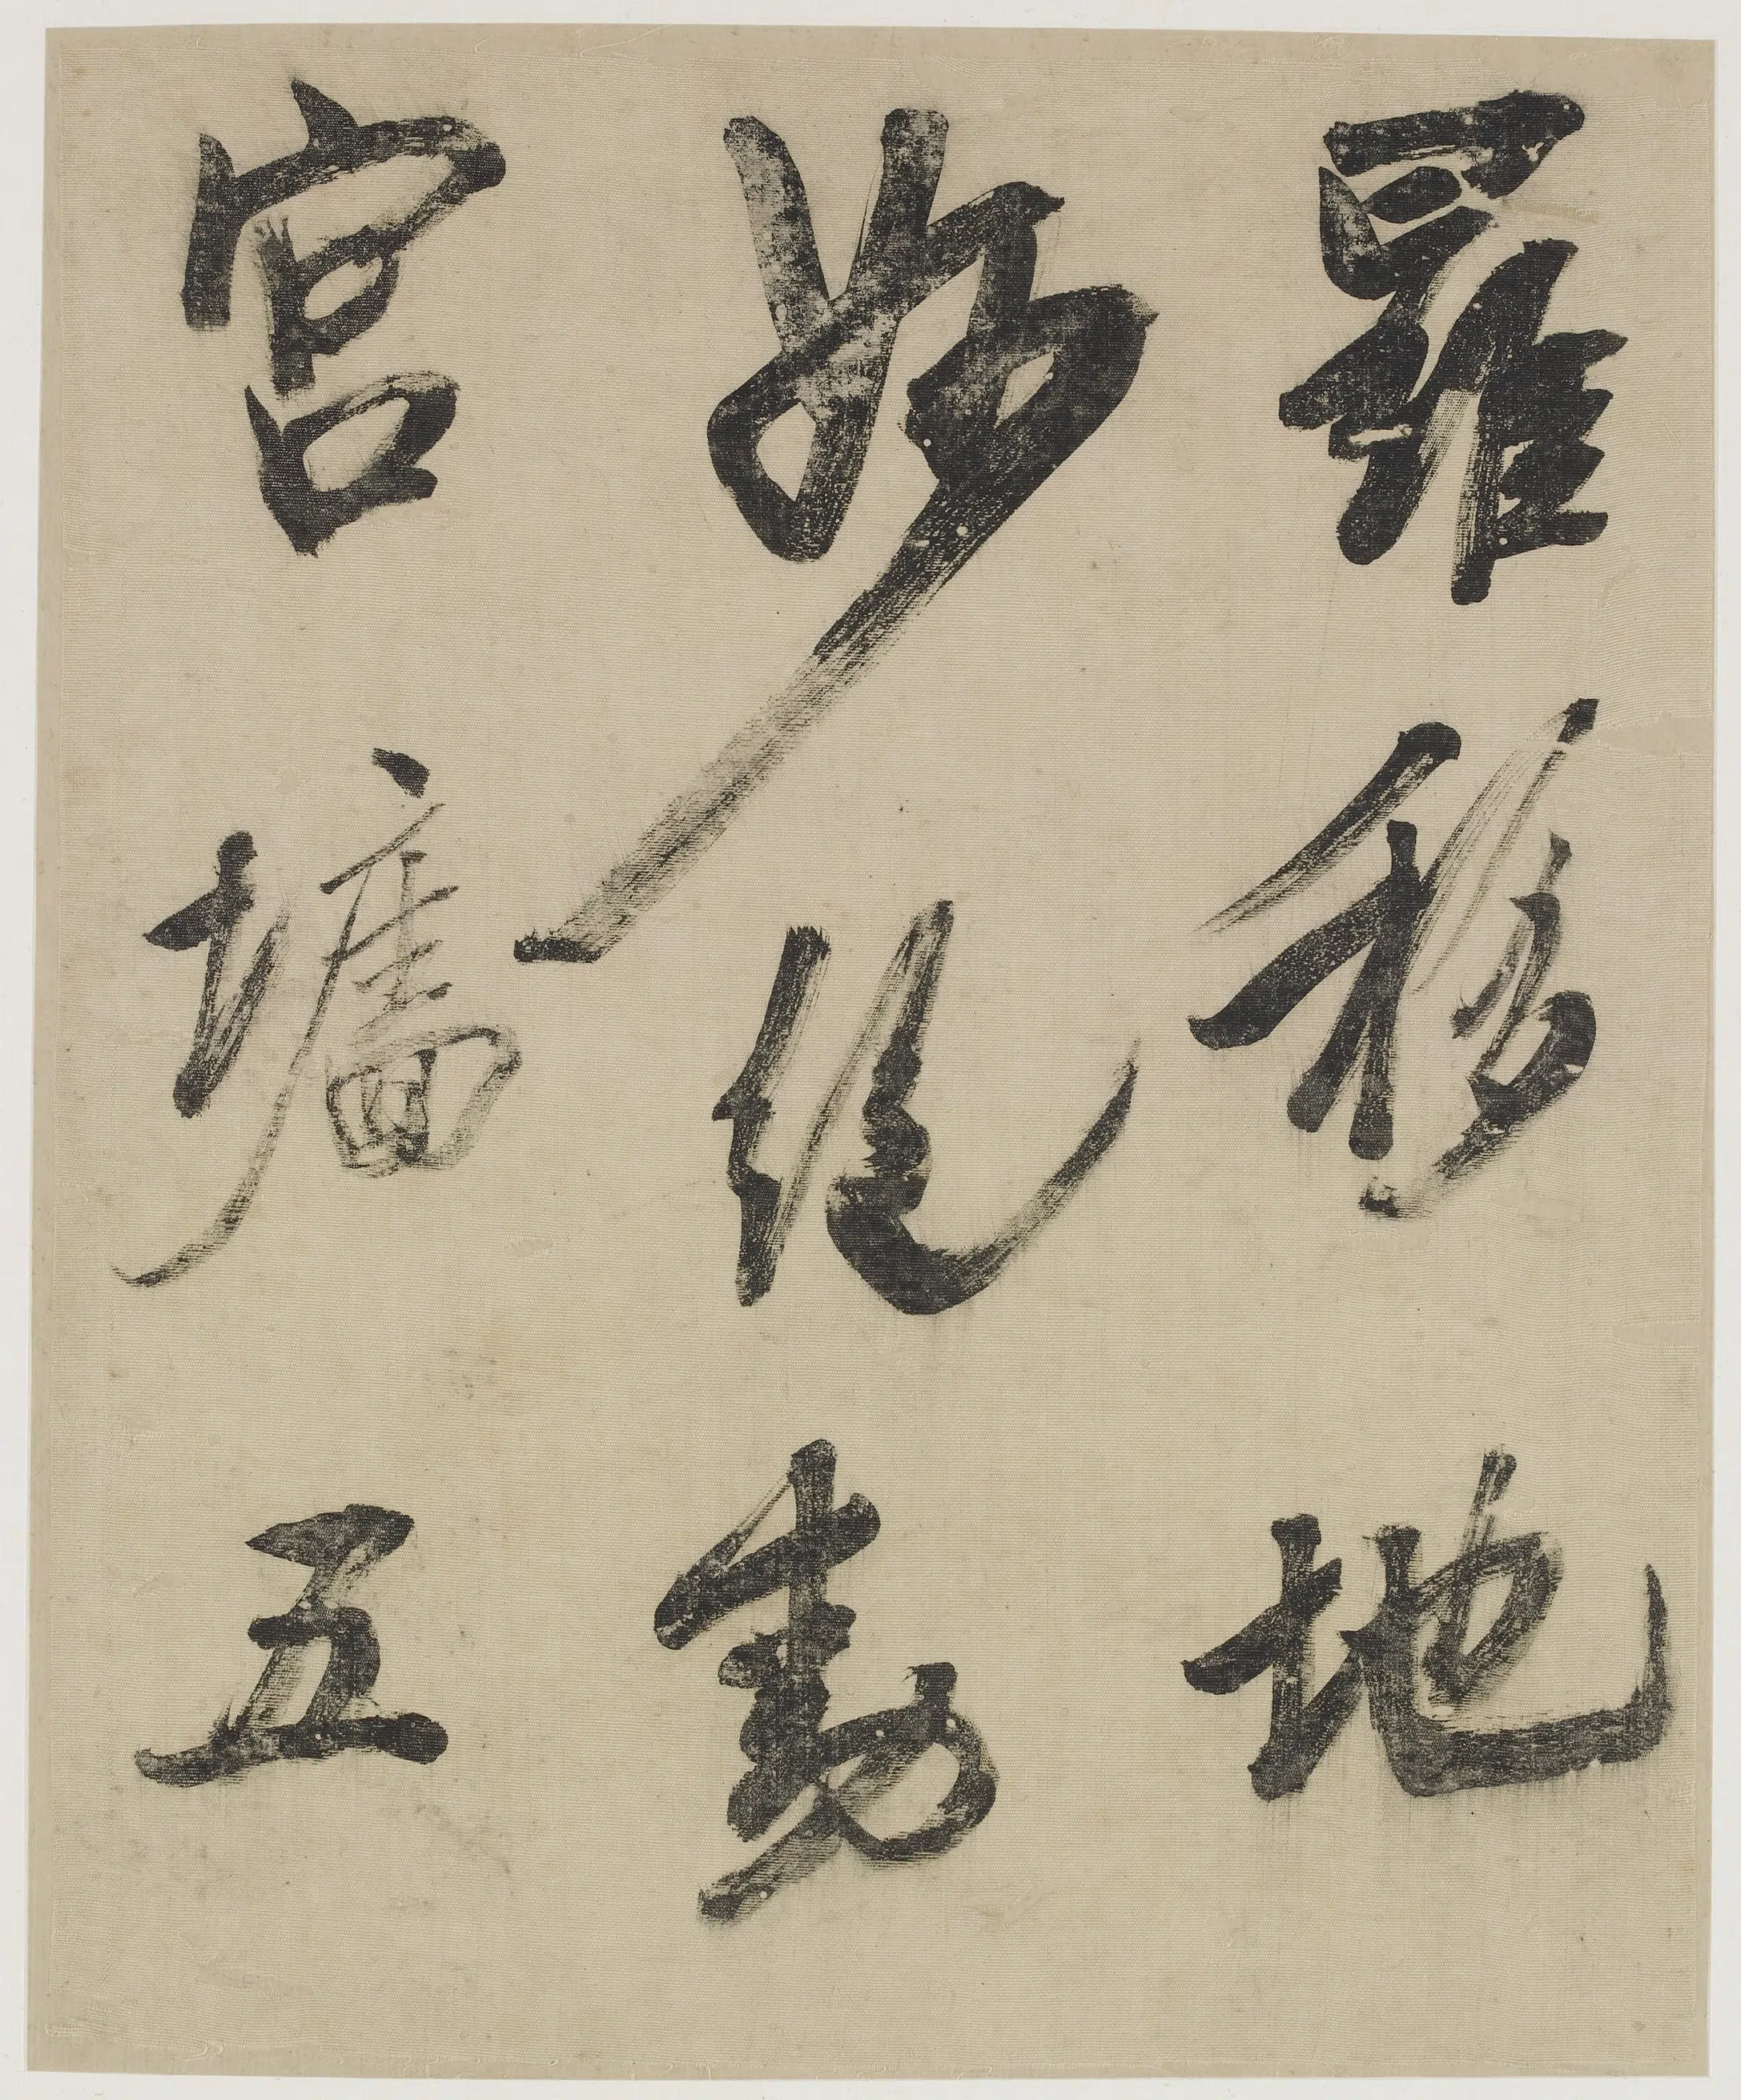 羅移地
妙化動
宮墉五